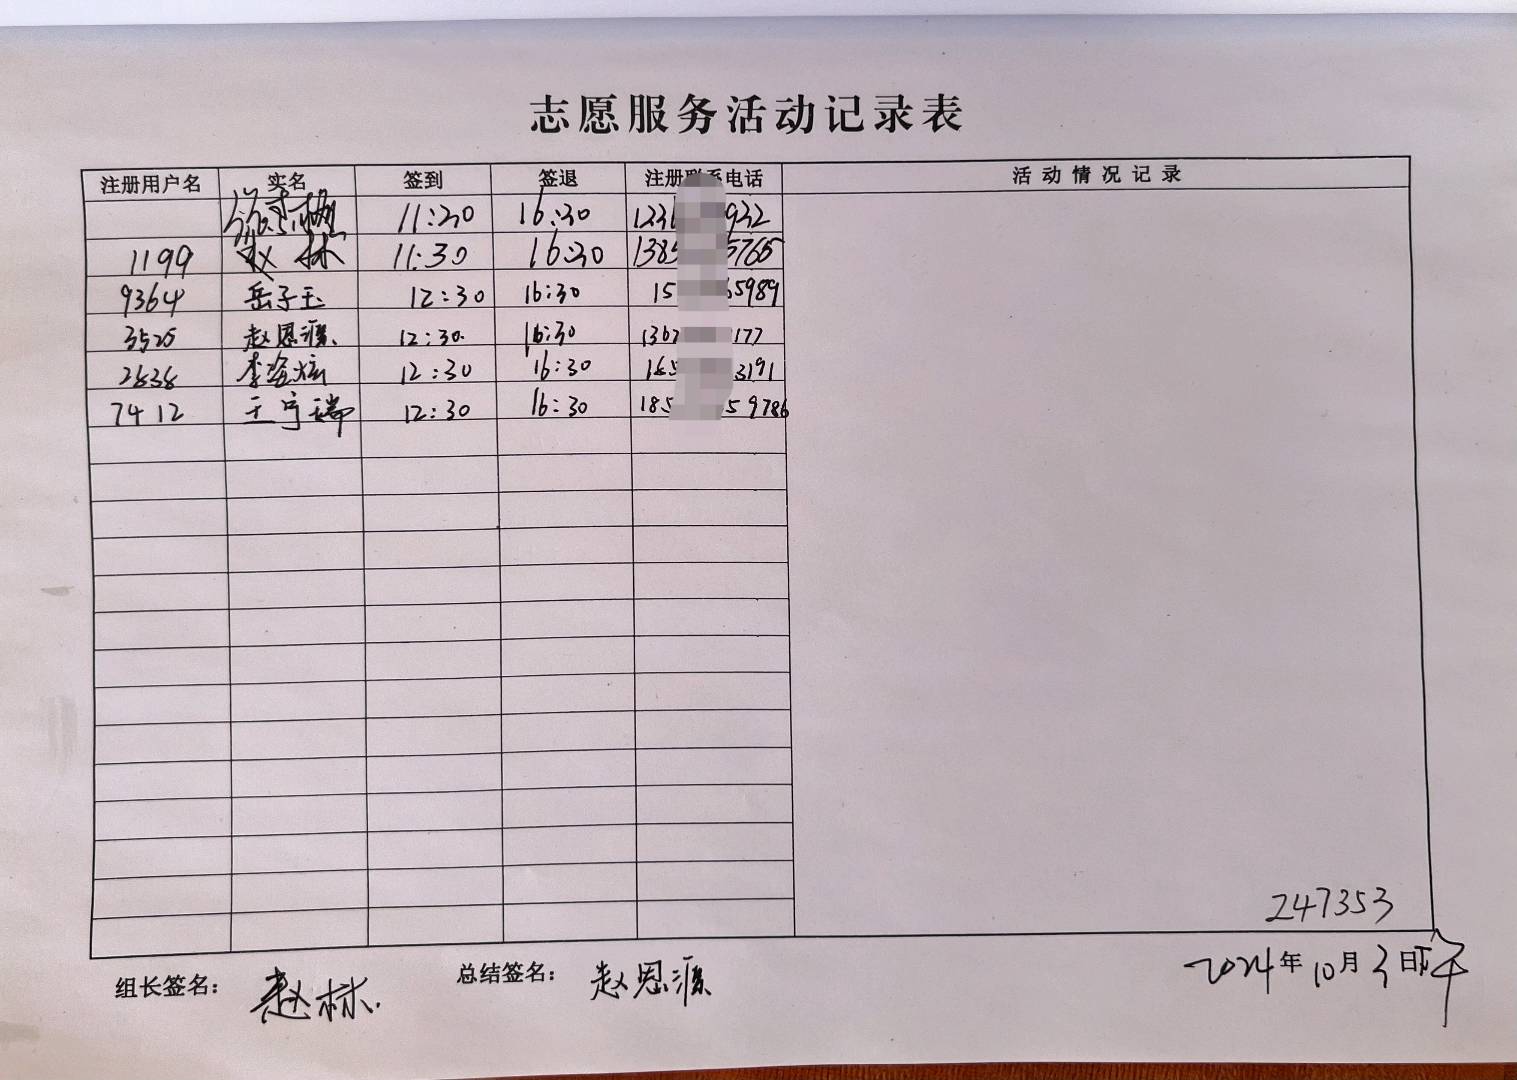 志愿服务活动记录表
注册用户名 实名 签到 签退 注册联系电话 活动情况记录
11:30 16:30 932
1199 赵林 11:30 16:30 1385 5765
9364 岳子玉 12:30 16:30 15 65989
3525 赵恩源 12:30 16:30 1367 177
2838 李金炫 12:30 16:30 185 3191
7412 王宁瑞 12:30 16:30 185 59786
247353
组长签名： 赵林 总结签名： 赵恩源 2024年10月3日下午